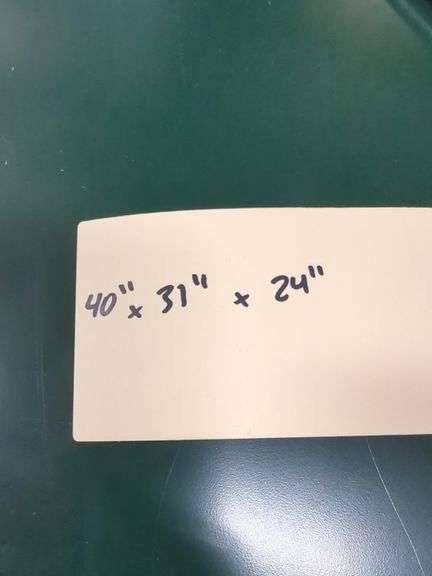 40" x 31" x 24"